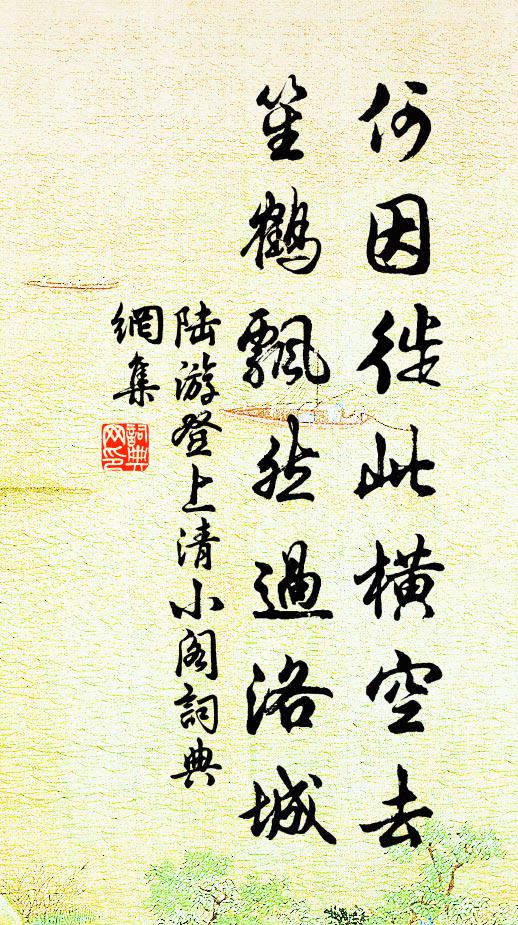 何因從此橫空去
笙鶴飄然過洛城
陸游登上清小閣詞典
網集
詞典
网印